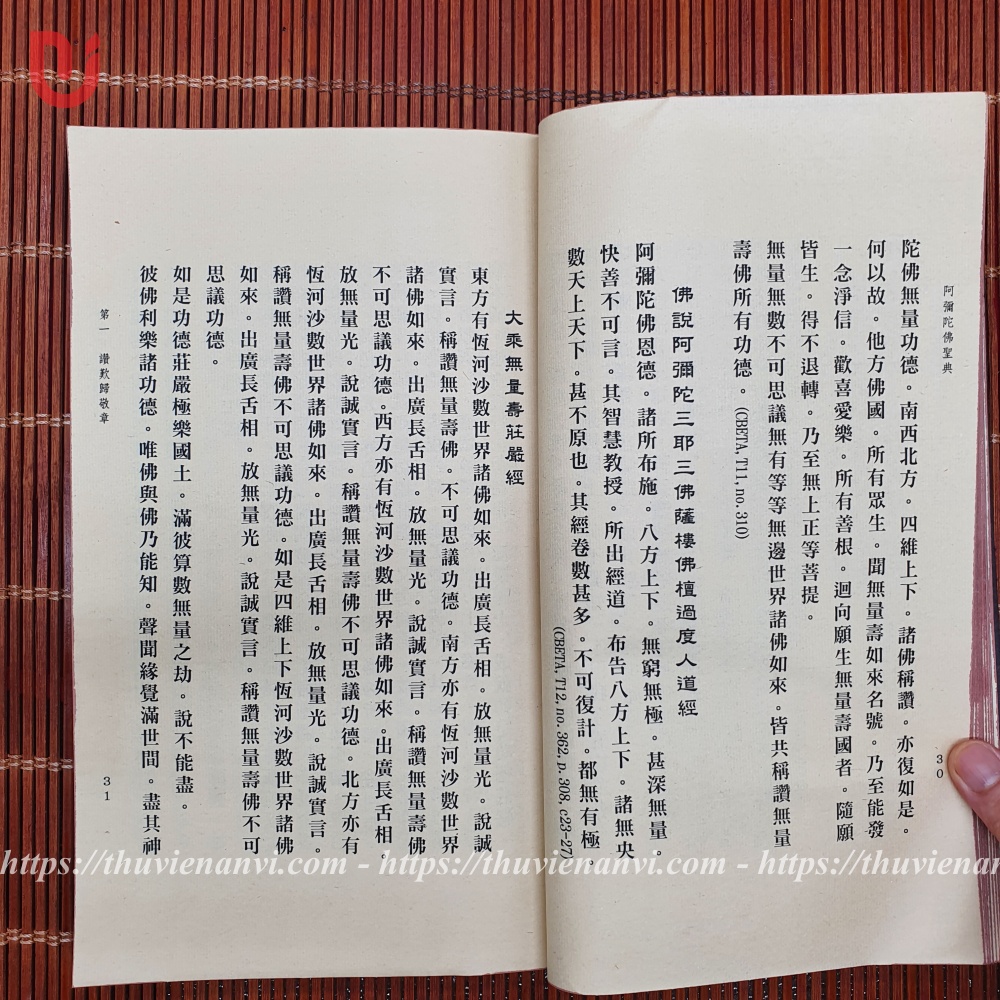 阿彌陀佛聖典
30
陀佛無量功德。南西北方。四維上下。諸佛稱讚。亦復如是。
何以故。他方佛國。所有眾生。聞無量壽如來名號。乃至能發
一念淨信。歡喜愛樂。所有善根。迴向願生無量壽國者。隨願
皆生。得不退轉。乃至無上正等菩提。
無量無數不可思議無有等等無邊世界諸佛如來。皆共稱讚無量
壽佛所有功德。(CBETA, T11, no. 310)
佛說阿彌陀三耶三佛薩樓佛檀過度人道經
阿彌陀佛恩德。諸所布施。八方上下。無窮無極。甚深無量。
快善不可言。其智慧教授。所出經道。布告八方上下。諸無央
數天上天下。甚不原也。其經卷數甚多。不可復計。都無有極。
(CBETA, T12, no. 362, p. 308, c23-27)
大乘無量壽莊嚴經
東方有恆河沙數世界諸佛如來。出廣長舌相。放無量光。說誠
實言。稱讚無量壽佛。不可思議功德。南方亦有恆河沙數世界
諸佛如來。出廣長舌相。放無量光。說誠實言。稱讚無量壽佛
不可思議功德。西方亦有恆河沙數世界諸佛如來。出廣長舌相。
放無量光。說誠實言。稱讚無量壽佛不可思議功德。北方亦有
恆河沙數世界諸佛如來。出廣長舌相。放無量光。說誠實言。
稱讚無量壽佛不可思議功德。如是四維上下恆河沙數世界諸佛
如來。出廣長舌相。放無量光。說誠實言。稱讚無量壽佛不可
思議功德。
如是功德莊嚴極樂國土。滿彼算數無量之劫。說不能盡。
彼佛利樂諸功德。唯佛與佛乃能知。聲聞緣覺滿世間。盡其神
第一 讚歎歸敬章
31
https://thuvienanvi.com - https://thuvienanvi.com - https://thuvienar